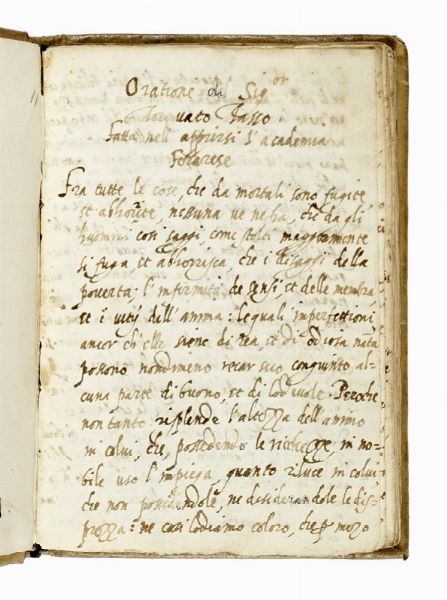 Oratione di Sig.or
Torquato Tasso
fatta nell'aprirsi l'academia
Ferrarese
Fra tutte le cose, che da mortali sono fugite
et abhorite, nessuna ve ne ha, che da gli
huomini così saggi, come stolti maggiormente
si fuga, et abhorisca, che i disaggi della
povertà: l'infirmità de sensi, et delle membra
et i vitij dell'anima: le quali imperfettioni
ancor ch'elle siano di rea, et di odiosa natura
possono nondimeno recar seco congiunto al-
cuna parte di buono, et di lodevole. Peroche
non tanto risplende l'altezza dell'animo
in colui, che, possedendo le richezze, in no-
bile uso l'impiega, quanto riluce in colui,
che non possedendole, ne desiderandole le dis-
prezza: ne così lodiamo coloro, che